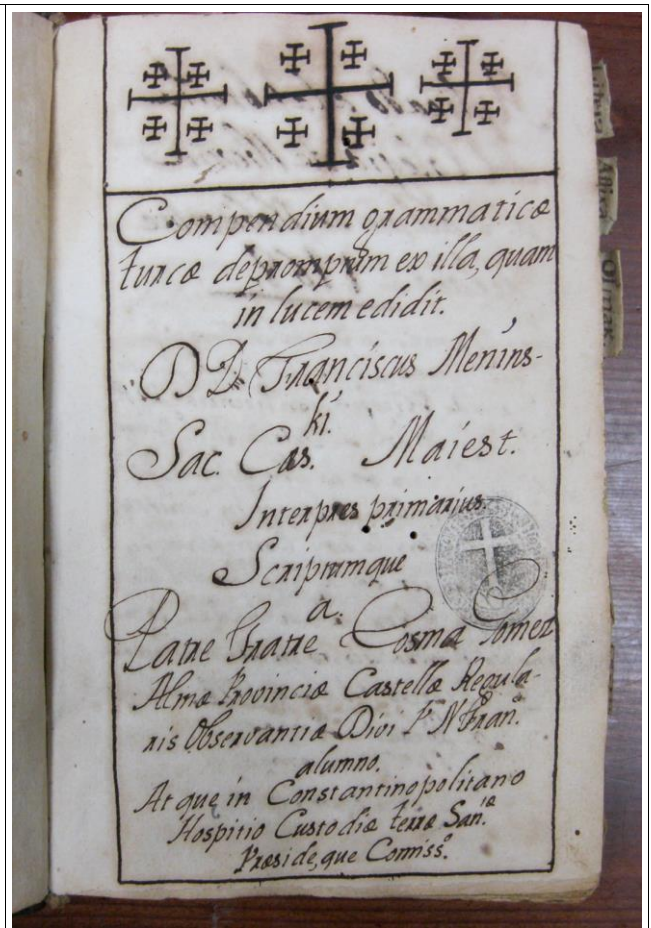 Compendium grammaticæ
turcæ depromptum ex illa, quam
in lucem edidit.
D D. Franciscus Menins-
ki.
Sac. Cæs. Maiest.
Interpres primarius.
Scriptumque
a.
Patre Fratre Cosma Gomez
Almæ Provinciæ Castellæ Regula-
ris Observantiæ Divi P N Fran.
alumno.
At que in Constantinopolitano
Hospitio Custodiæ terræ San.æ
Præside, que Comiss.º